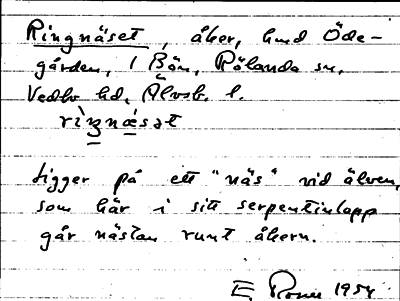 Ringnäset, åker, hmd Öde-
gården, 1 Bön, Rölanda sn,
Vedbo hd, Älvsb. l.
rìŋnæ̀sət
Ligger på ett "näs" vid älven,
som här i sitt serpentinlopp
går nästan runt åkern.
E 1954